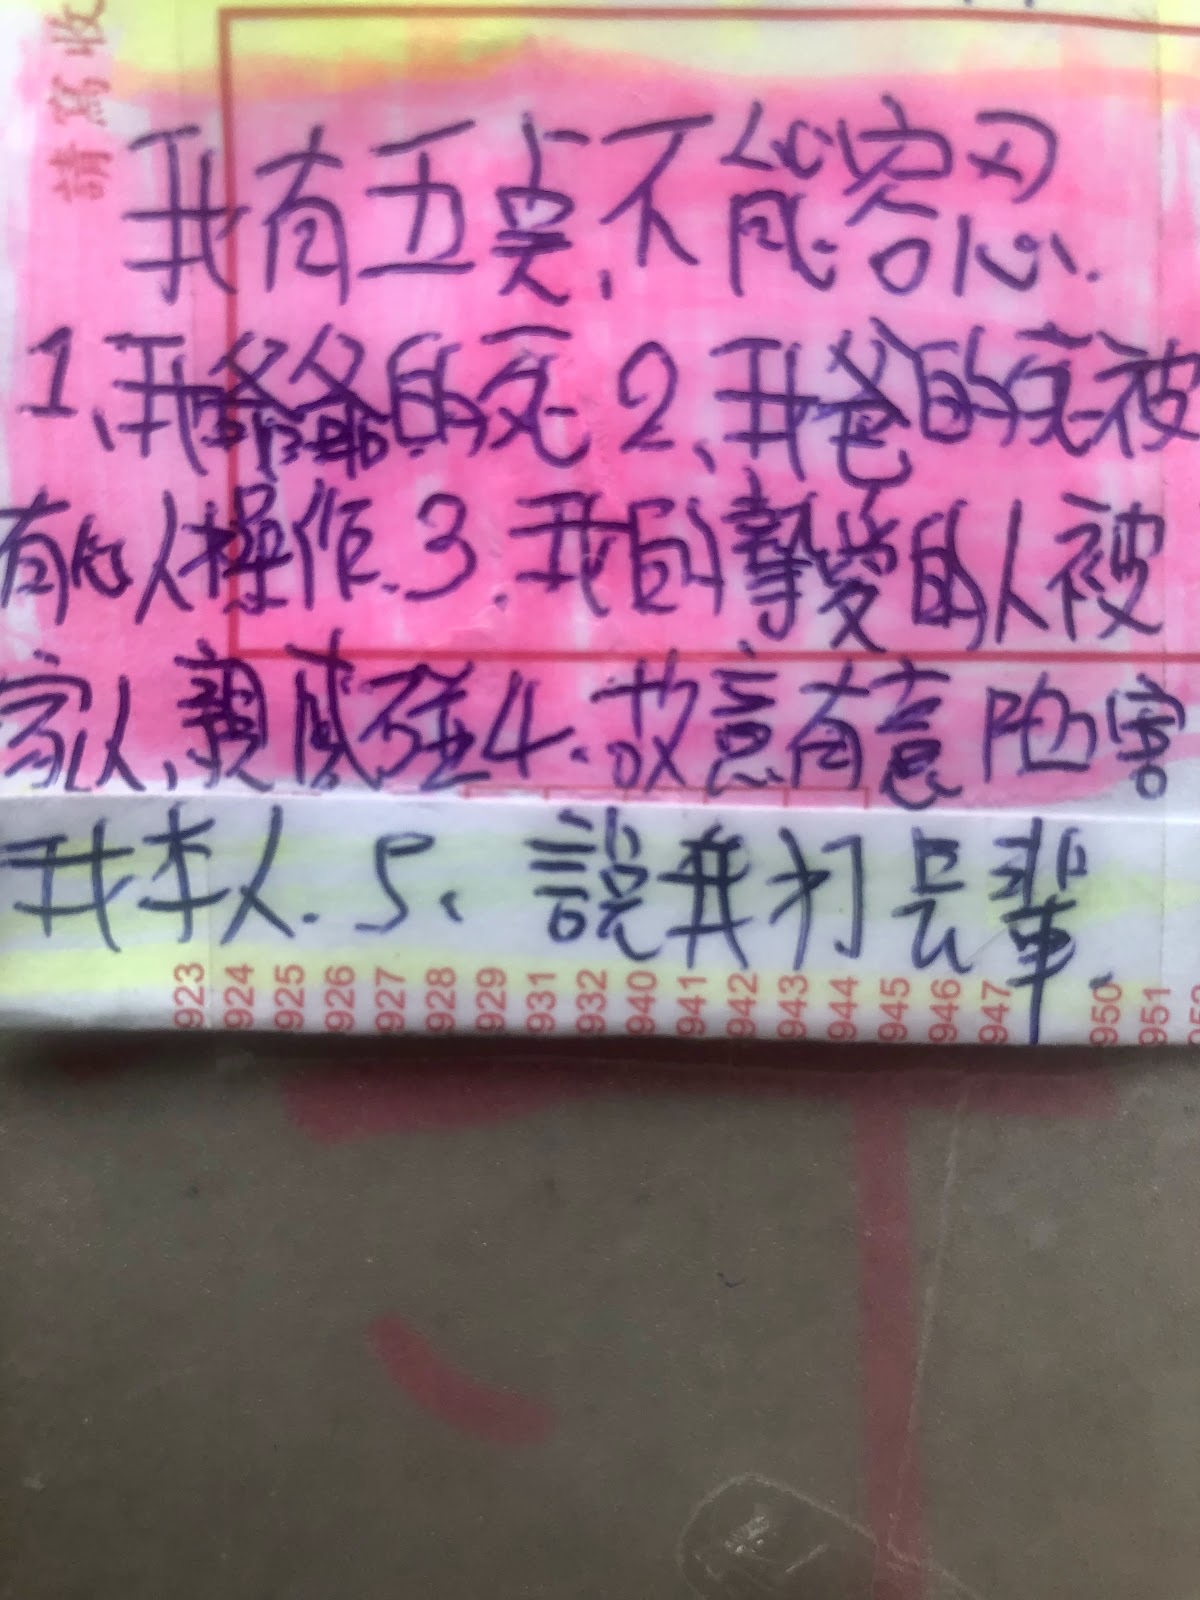 請寫收
我有五点、不能容忍.
1、我爺爺的死 2、我爸的死被
有心人操作.3.我的摯愛的人被
家人、親戚碰4.故意有意陷害
我本人.5、說我打長輩.
923 924 925 926 927 928 929 931 932 940 941 942 943 944 945 946 947 950 951